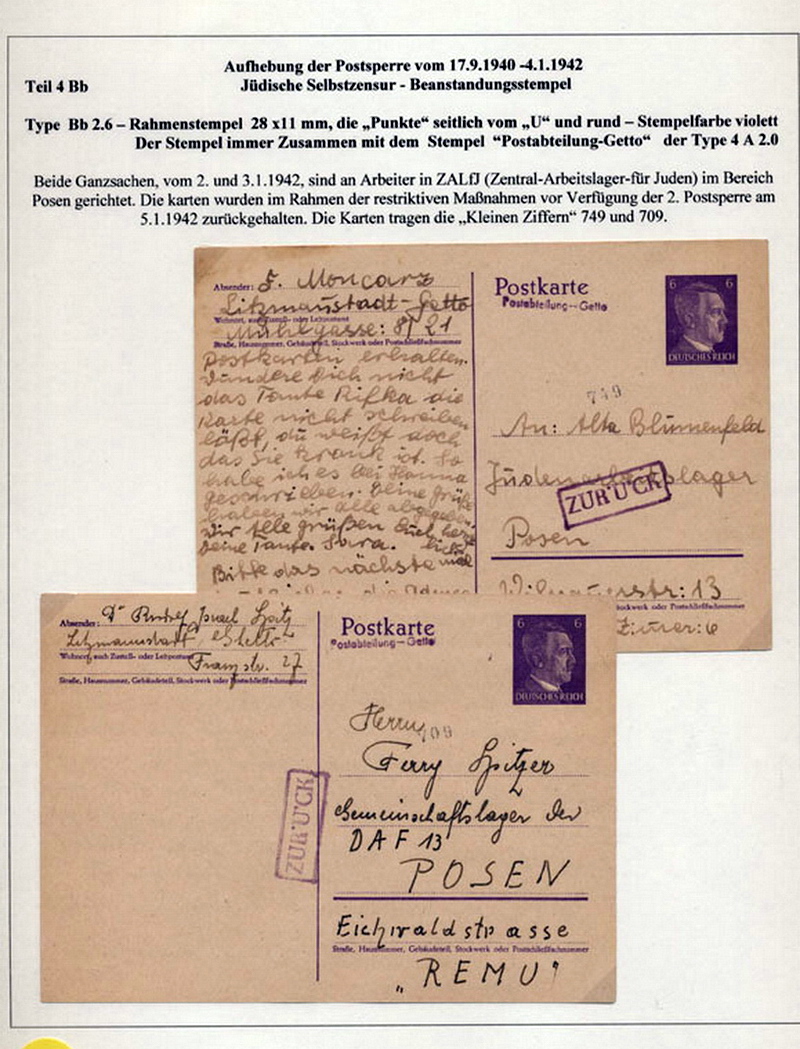 Aufhebung der Postsperre vom 17.9.1940 -4.1.1942
Teil 4 Bb
Jüdische Selbstzensur - Beanstandungsstempel
Type Bb 2.6 – Rahmenstempel 28 x11 mm, die „Punkte“ seitlich vom „U“ und rund – Stempelfarbe violett
Der Stempel immer Zusammen mit dem Stempel “Postabteilung-Getto“ der Type 4 A 2.0
Beide Ganzsachen, vom 2. und 3.1.1942, sind an Arbeiter in ZALfJ (Zentral-Arbeitslager-für Juden) im Bereich
Posen gerichtet. Die karten wurden im Rahmen der restriktiven Maßnahmen vor Verfügung der 2. Postsperre am
5.1.1942 zurückgehalten. Die Karten tragen die „Kleinen Ziffern“ 749 und 709.
Absender: F. Moncarz
Litzmannstadt-Getto
Wohnort, auch Zustell- oder Leitpostamt
Mühlgasse: 8/21
Straße, Hausnummer, Gebäudeteil, Stockwerk oder Postschließfachnummer
Postkarten erhalten.
Wundere Dich nicht
das Tante Rifka die
Karte nicht schreiben
läßt, du weißt doch
das Sie krank ist. So
habe ich es bei Hanna
geschrieben. Deine Grüße
haben wir alle abgegeben
Wir alle grüßen Euch herz
Deine Tante. Sara.
Bitte das nächste mal
Postkarte
Postabteilung--Getto
6 6
DEUTSCHES REICH
749
An: Alta Blumenfeld
Judenarbeitslager
ZURÜCK
Posen
13
Stockwerk oder Postschließfachnummer
Absender: Dr Rudolf Israel Spitz
Litzmannstadt Ghetto
Wohnort, auch Zustell- oder Leitpostamt
Franzstr. 27
Straße, Hausnummer, Gebäudeteil, Stockwerk oder Postschließfachnummer
Postkarte
Postabteilung--Getto
6 6
DEUTSCHES REICH
Herrn
709
Ferry Spitzer
Gemeinschaftslager der
DAF 13
ZURÜCK
POSEN
Eichwaldstrasse
Straße, Hausnummer, Gebäudeteil, Stockwerk oder Postschließfachnummer
„REMU"